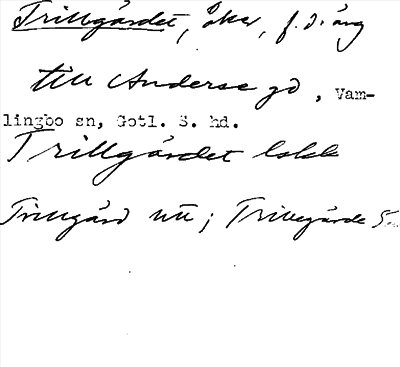 Trillgårdet, åker, f.d. äng
till Anderse gd, Vam-
lingbo sn, Gotl. S. hd.
Trillgårdet lokk
Trillgård ; Trillegårde